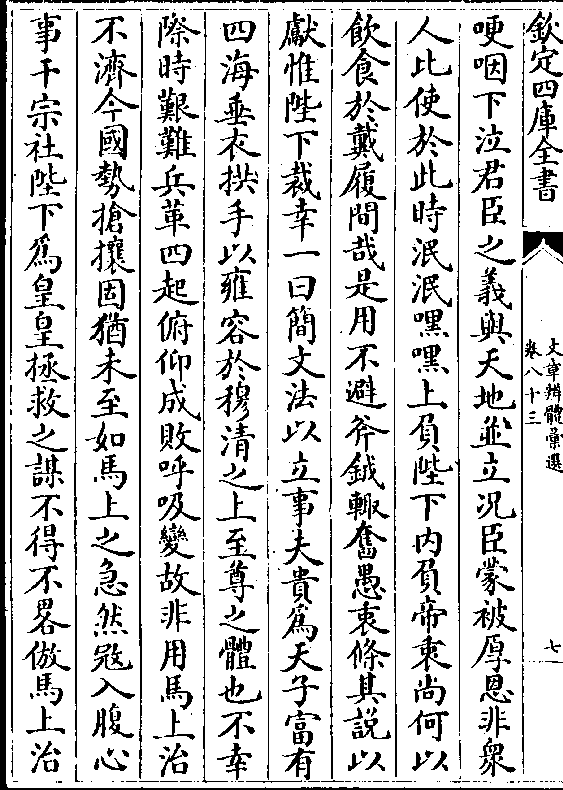 欽定四庫全書
文章辨體彙選
卷八十三
七
哽咽下泣君臣之義與天地並立况臣蒙被厚恩非衆
人比使於此時泯泯嘿嘿上負陛下内負帝衷尚何以
飲食於戴履間哉是用不避斧鉞輙奮愚衷條其説以
獻惟陛下裁幸一曰簡文法以立事夫貴爲天子富有
四海垂衣拱手以雍容於穆清之上至尊之體也不幸
際時艱難兵革四起俯仰成敗呼吸變故非用馬上治
不濟今國勢搶攘固猶未至如馬上之急然㓂入腹心
事干宗社陛下爲皇皇拯救之謀不得不畧倣馬上治